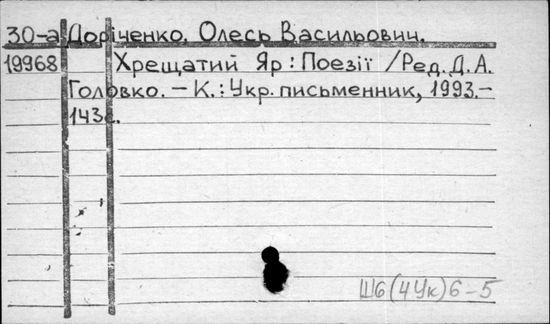 30-а Доріченко, Олесь Васильович.
19968 Хрещатий Яр : Поезії / Ред. Д. А.
Головко. – К. : Укр. письменник, 1993. –
143с.
Ш6(4Ук)6-5